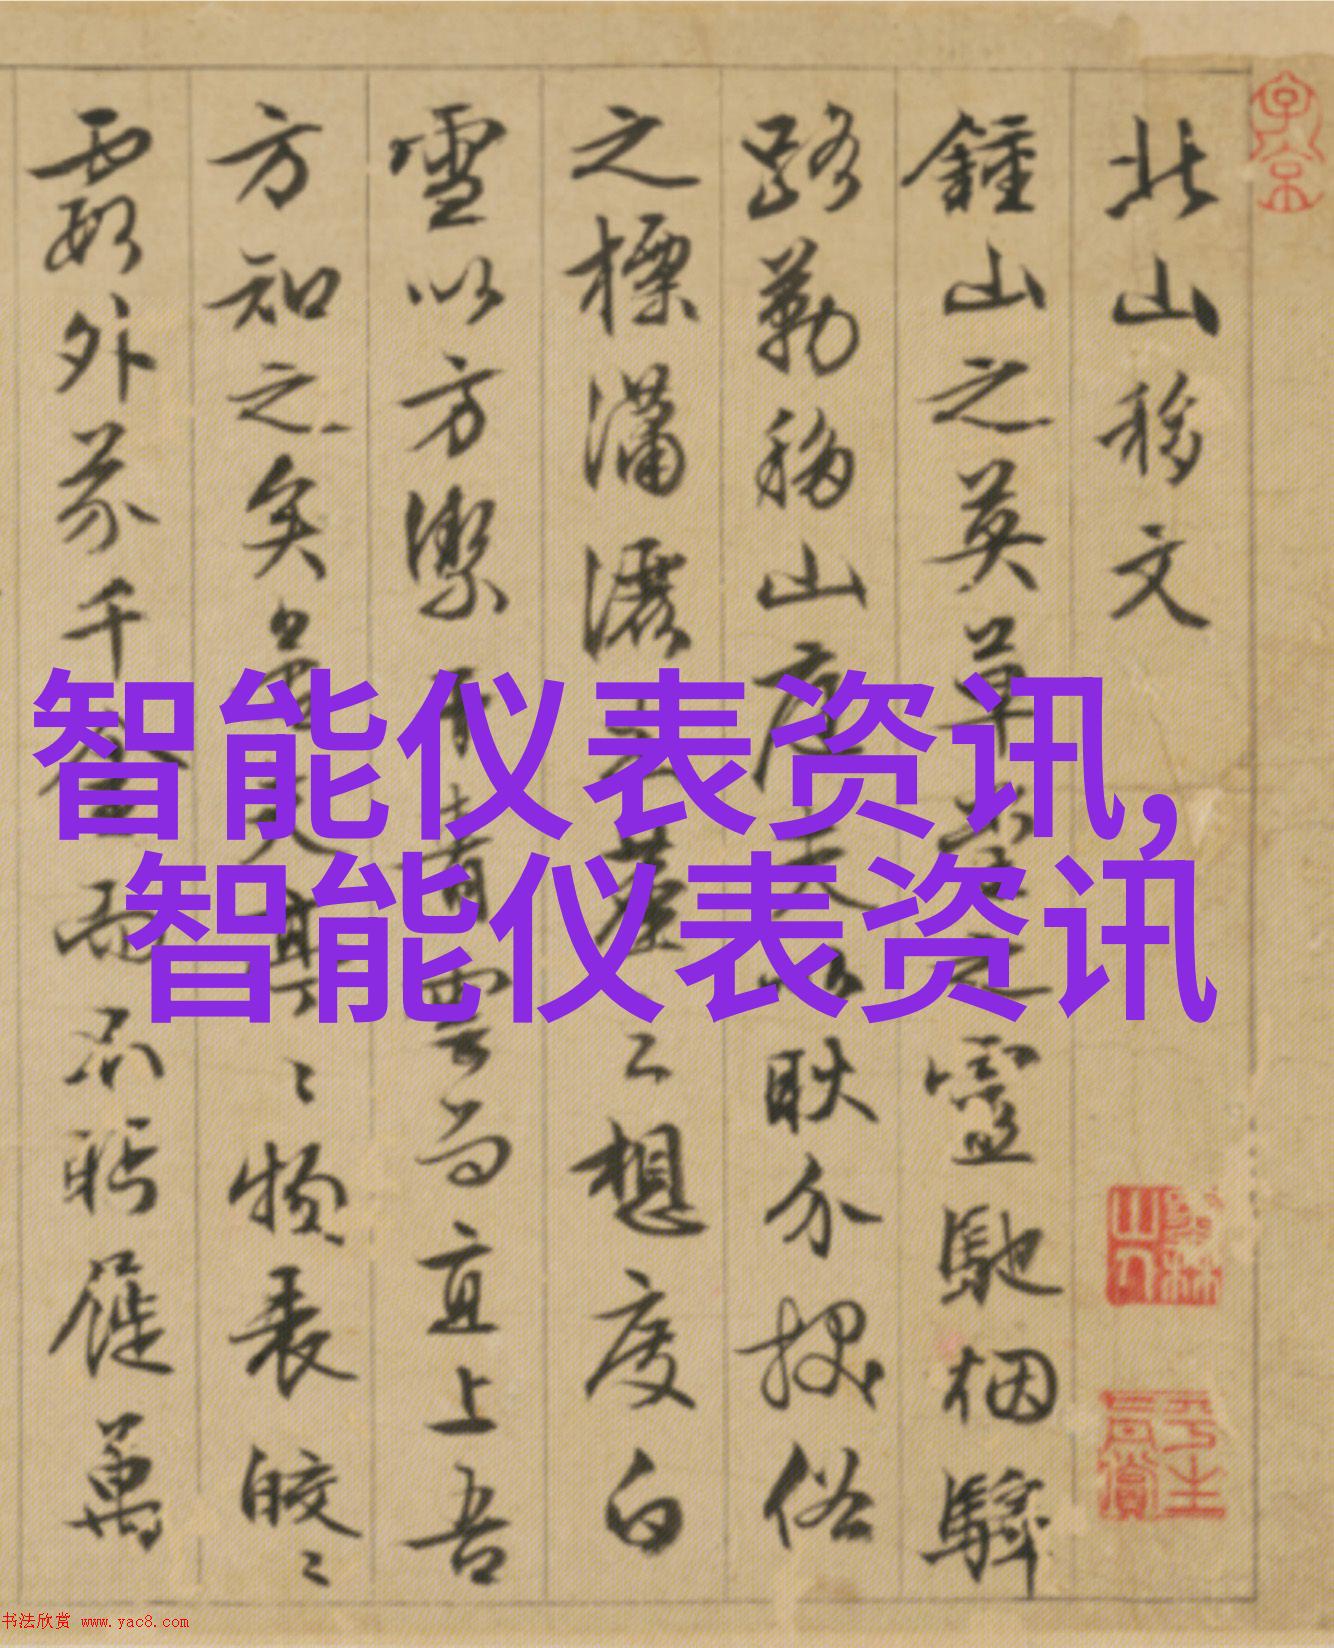 北山移文
鍾山之英草堂之靈馳烟驛
路勒移山庭夫以耿介拔俗
之標瀟灑出塵之想度白
雪以方潔干青雲而直上吾
方知之矣物表皎〻
霞外芥千金而不眄屣萬
智能仪表资讯,
智能仪表资讯
书法欣赏 www.yac8.com